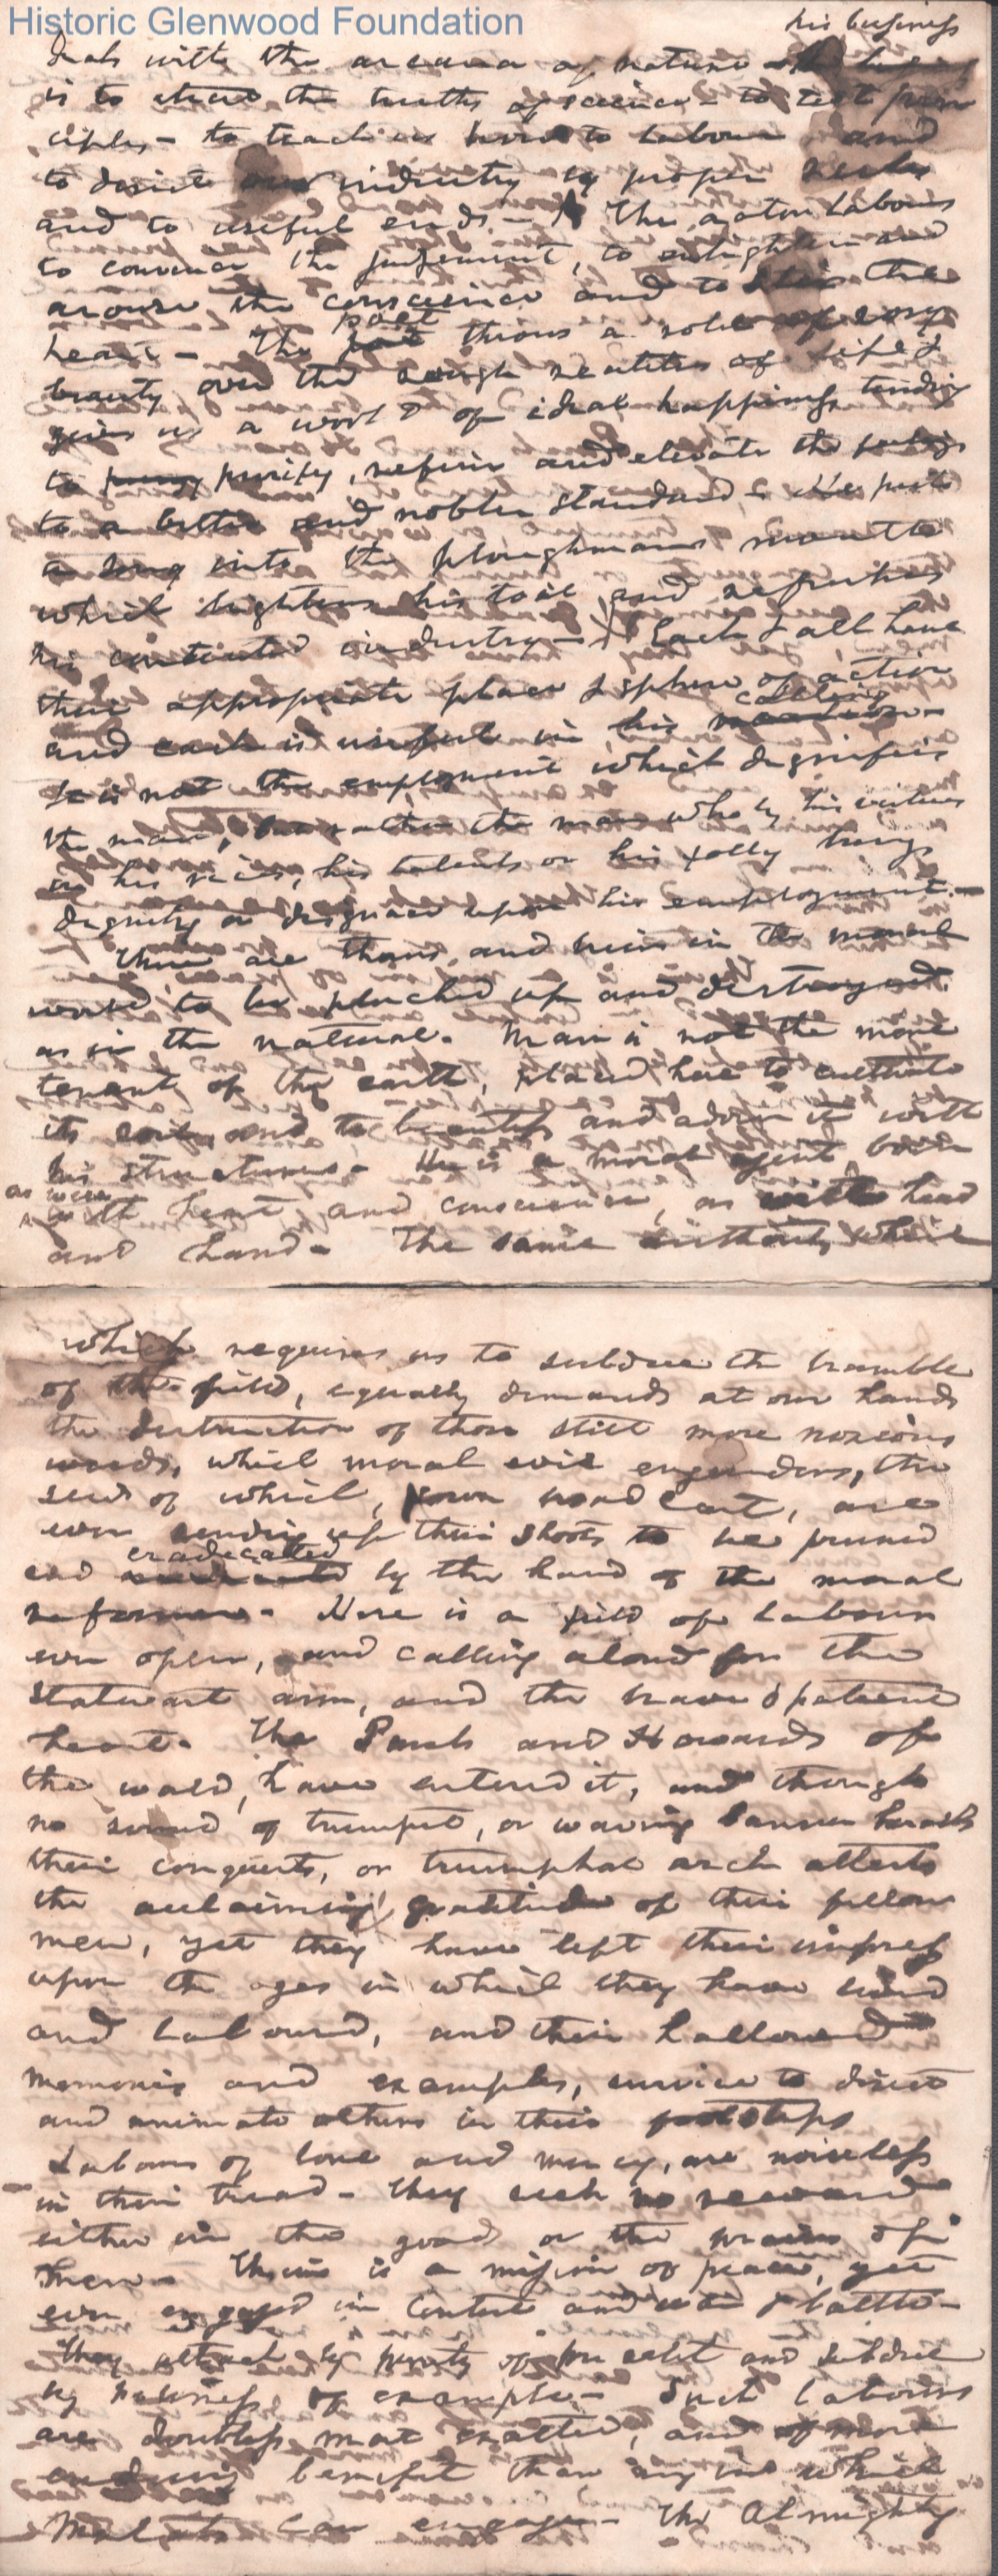 Historic Glenwood Foundation
his business
deals with the arcana of nature
is to the truths of science - to test prin
ciples - to teach us how to labour and
to direct our industry by proper
and to useful ends - The orator labours
to convince the judgement, to enlighten and
arouse the conscience and to the
heart - The poet throws a robe of
beauty over the rough realities of life &
gives us a world of ideal happiness tending
to purify, refine and elevate the feelings
to a better and nobler standard - He puts
a song into the ploughmans mouth
which lightens his toil and refreshes
his contented industry - Each & all have
their appropriate place & sphere of action
and each is useful in his calling -
It is not the employment which dignifies
the man, but rather the man who by his virtues
or his vices, his talents or his folly brings
dignity or disgrace upon his employment -
There are thorns and briers in the moral
world to be plucked up and destroyed
as in the natural. Man is not the mere
tenant of the earth, placed here to cultivate
its soil, and to beautify and adorn it with
his structures - He is a moral agent born
as well
with heart and conscience, as with head
and hand - The same authority which
which requires us to subdue the bramble
of the field, equally demands at our hands
the destruction of those still more noxious
weeds, which moral evil engenders, the
seed of which, sown broad cast, are
ever sending up their shoots to be pruned
eradicated
and by the hand of the moral
reformer - Here is a field of labour
ever open, and calling aloud for the
stalwart arm, and the brave & patient
heart. The Pauls and Howards of
the world, have entered it, and though
no sound of trumpet, or waving banner heralds
their conquests, or triumphal arch attests
the acclaiming gratitude of their fellow
men, yet they have left their impress
upon the ages in which they have lived
and laboured, and their hallowed
memories and examples, survive to direct
and animate others in their footsteps
Labours of love and mercy, are noiseless
in their tread - they seek no reward
either in the goods or the praises of
men - Theirs is a mission of peace, yet
ever engaged in contest and war & battle -
They attract by purity of precept and subdue
by holiness of example - Such labours
are doubtless most exalted, and of more
enduring benefit than any in which
Mortals can engage - The Almighty